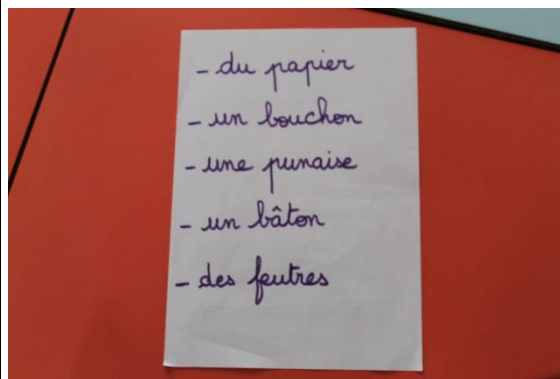 - du papier
- un bouchon
- une punaise
- un bâton
- des feutres